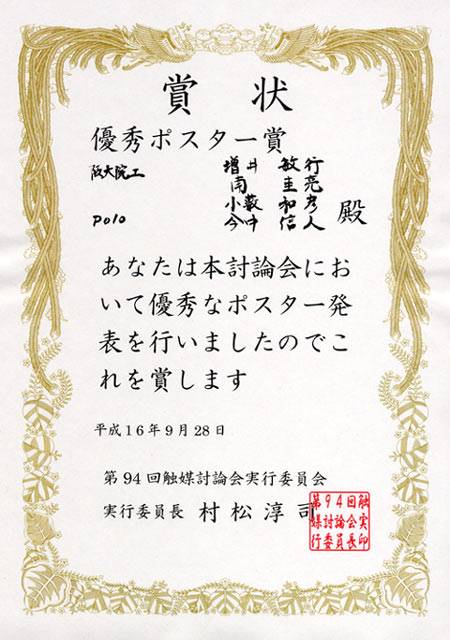 賞 状
優秀ポスター賞
阪大院工 増井 敏行
南 圭亮
小薮 和彦
P010 今中 信人 殿
あなたは本討論会にお
いて優秀なポスター発
表を行いましたのでこ
れを賞します
平成16年9月28日
第94回触媒討論会実行委員会
実行委員長 村松淳司
第94回触
媒討論会実
行委員長印